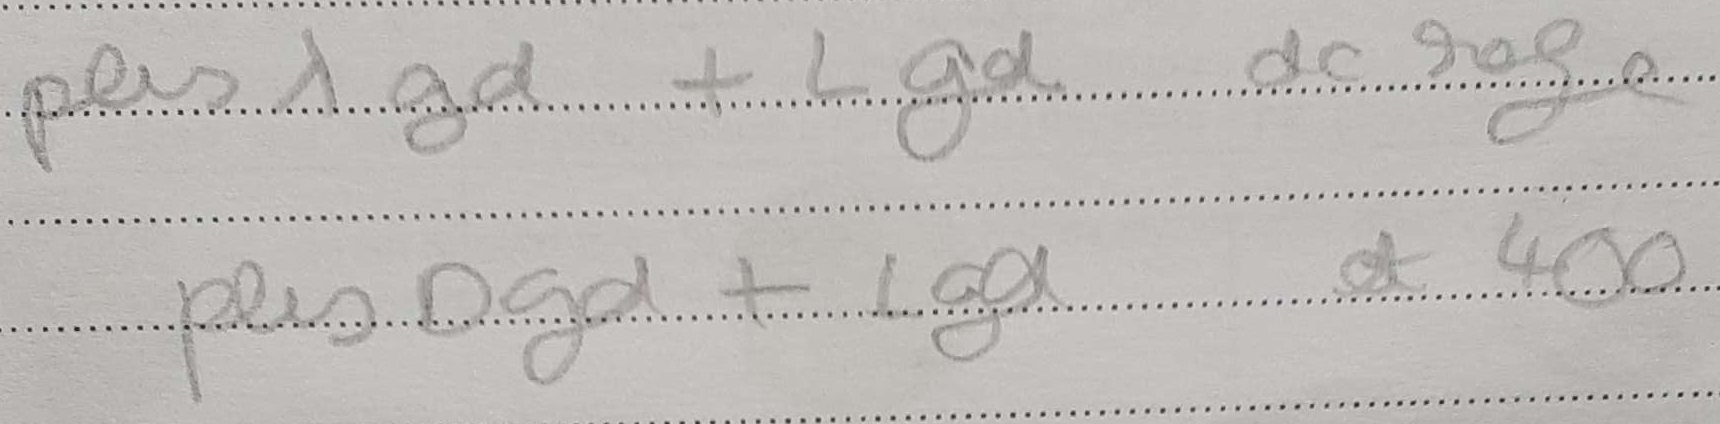 plus λ gd + L gd dc rouge
plus D gd + L gd et 400